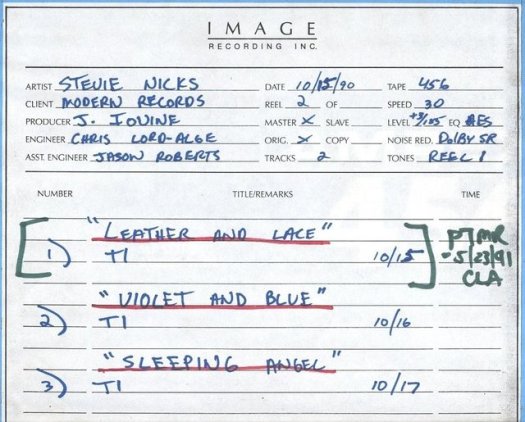 IMAGE
RECORDING INC.
ARTIST STEVIE NICKS DATE 10/15/90 TAPE 456
CLIENT MODERN RECORDS REEL 2 OF SPEED 30
PRODUCER J. IOVINE MASTER X SLAVE LEVEL +3/185 EQ AES
ENGINEER CHRIS LORD-ALGE ORIG. X COPY NOISE RED. DOLBY SR
ASST. ENGINEER JASON ROBERTS TRACKS 2 TONES REEL 1
NUMBER TITLE/REMARKS TIME
"LEATHER AND LACE"
1) T1 10/15
PT MR
-5/23/91
CLA
"VIOLET AND BLUE"
2) T1 10/16
"SLEEPING ANGEL"
3) T1 10/17